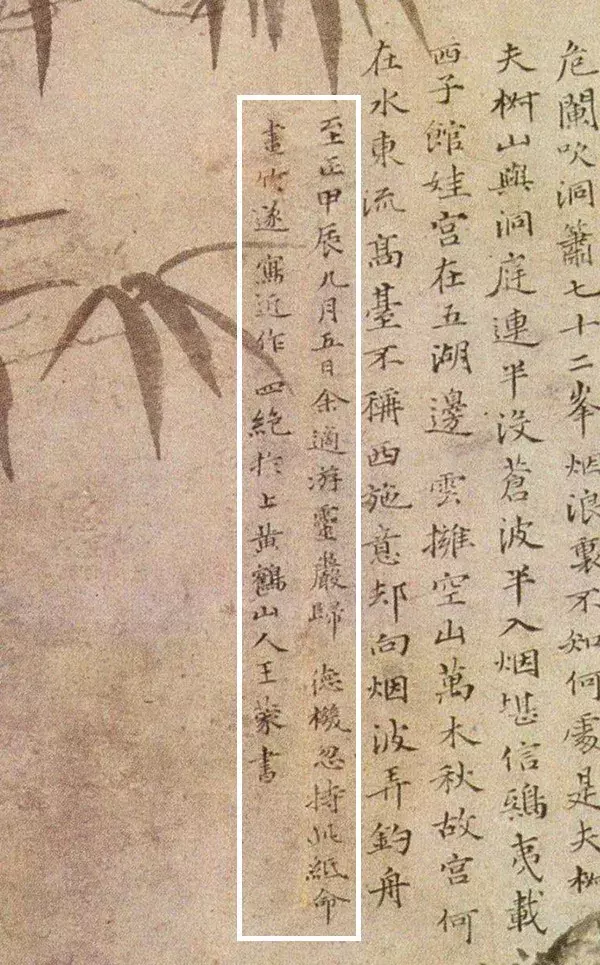 危闌吹洞簫七十二峯烟浪裏不知何處是夫椒
夫椒山與洞庭連半没蒼波半入烟堪信鴟夷載
西子館娃宫在五湖邊 雲擁空山萬木秋故宫何
在水東流高臺不稱西施意却向烟波弄釣舟
至正甲辰九月五日余適游靈巖歸 德機忽持此紙命
畫竹遂寫近作四絶於上黄鶴山人王蒙書